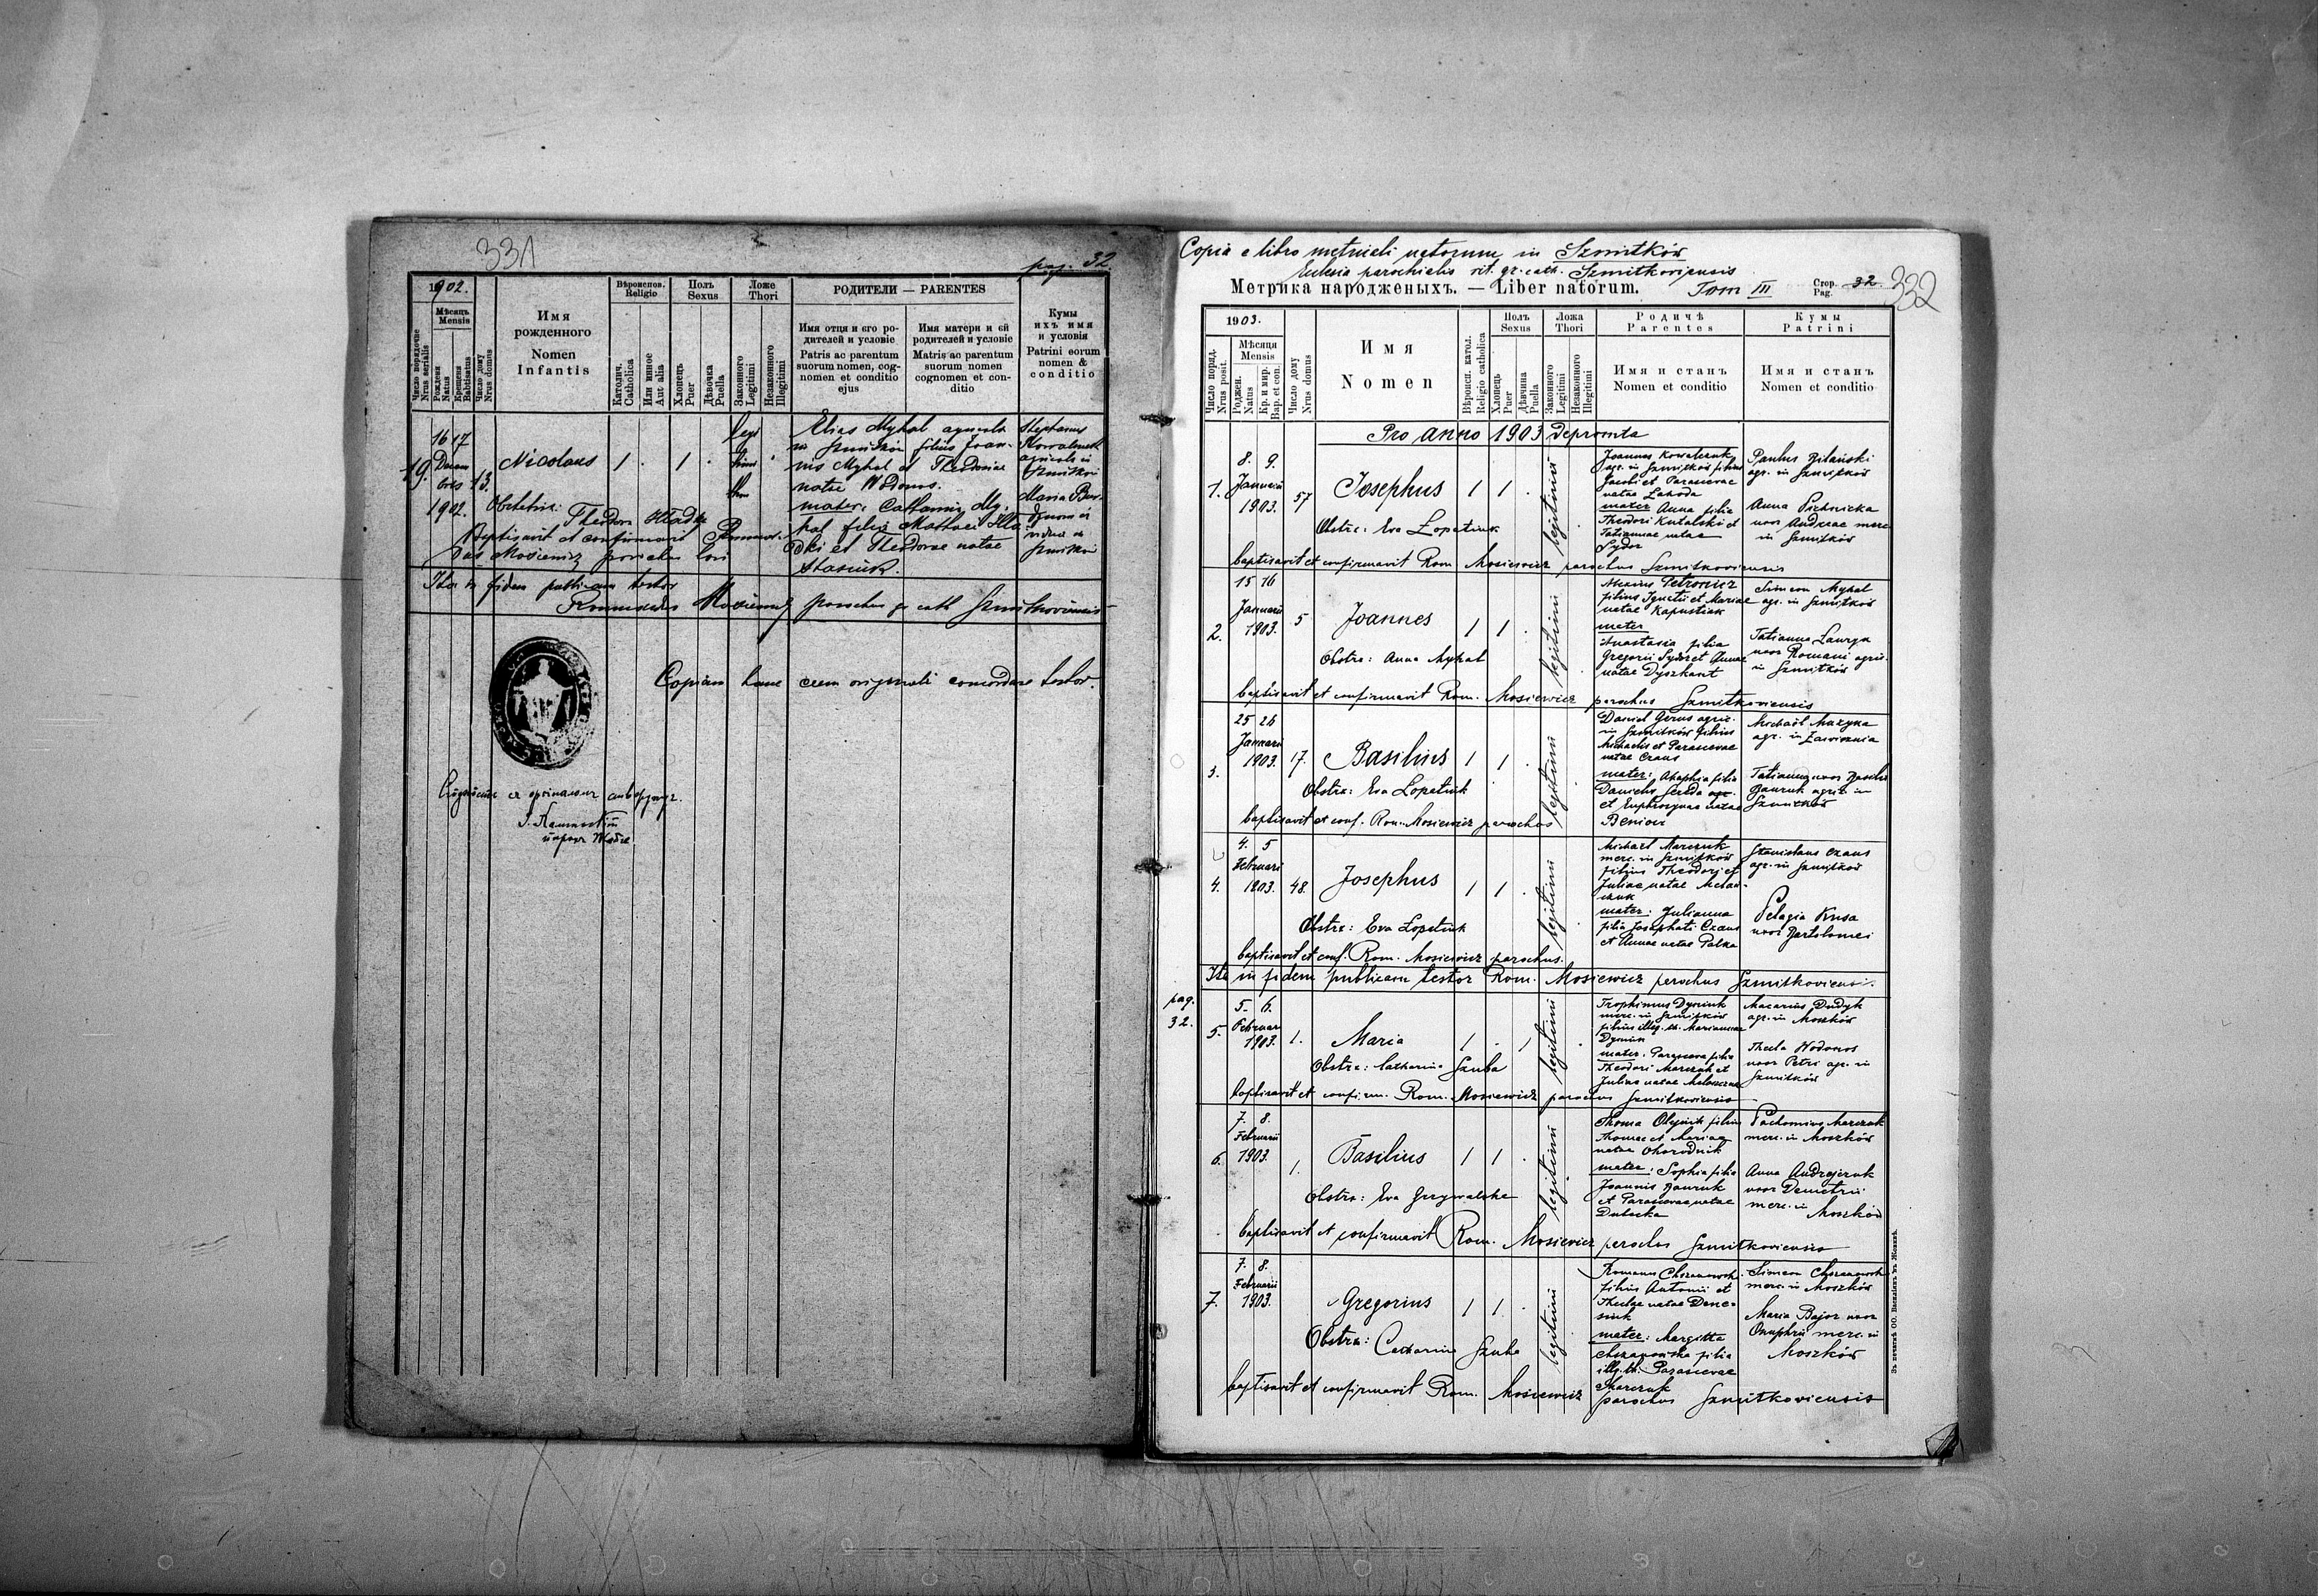 331
pag. 32.
1902.
Число порядочне
Nrus serialis
Мѣсяць
Mensis
Рожденя
Natus
Крещеня
Babtisatus
Число дому
Nrus domus
Имя
рожденного
Nomen
Infantis
Вѣроиспов.
Religio
Католич.
Catholica
Или иное
Aut alia
Полъ
Sexus
Хлопець
Puer
Дѣвочка
Puella
Ложе
Thori
Законного
Legitimi
Незаконного
Illegitimi
РОДИТЕЛИ — PARENTES
Имя отця и єго ро-
дителей и условіе
Patris ac parentum
suorum nomen, cog-
nomen et conditio
ejus
Имя матери и єй
родителей и условіе
Matris ac parentum
suorum nomen
cognomen et con-
ditio
Кумы
ихъ имя
и условія
Patrini eorum
nomen &
conditio
19.
16 17
Decem
bris
1902.
13.
Nicolaus
1
1
legi
timi
thori
Elias Myhal agricola
in Szmitków filius Joan-
nis Myhal et Theodorae
natae Wodonos.
mater. Catharina My-
hal filia Matthaei Hla
dki et Theodorae natae
Stasiuk.
Stephanus
Kowalczuk
agricola in
Szmitków
Maria
vidua in
Szmitków
Obstetrix: Theodora Hladka
Baptisavit et confirmavit Romual-
dus Mosiewicz parochus loci
Ita in fidem publicam testor
Romualdus Mosiewicz parochus gr. cath. Szmitkoviensis
Copiam hanc cum originali concordare testor.
332
Copia e libro metricali natorum in Szmitków
Eclesia parochialis rit. gr. cath. Szmitkoviensis
Метрика народженыхъ. — Liber natorum. Tom III
Стор.
Pag. 32.
1903.
Число поряд.
Nrus posit.
Мѣсяця
Mensis
Роджен.
Natus
Кр. и мир.
Bap. et con.
Число дому
Nrus domus
Имя
Nomen
Вѣроисп. катол.
Religio catholica
Полъ
Sexus
Хлопець
Puer
Дѣвчина
Puella
Ложа
Thori
Законного
Legitimi
Незаконного
Illegitimi
Родичѣ
Parentes
Имя и станъ
Nomen et conditio
Кумы
Patrini
Имя и станъ
Nomen et conditio
Pro anno 1903 depromta
1.
8. 9.
Januarii
1903.
57
Josephus
1
1
legitimi
Joannes Kowalczuk
agr. in Szmitków filius
Jacobi et Parascevae
natae Lahoda
mater Anna filia
Theodori Kutalski et
Tatiannae natae
Sydor
Paulus Bilański
agr. in Szmitków
Anna Pichnicka
uxor Andreae merc.
in Szmitków
Obstre: Eva Lopatiuk
baptisavit et confirmavit Rom. Mosiewicz parochus Szmitkoviensis
2.
15 16
Januarii
1903.
5
Joannes
1
1
legitimi
Alexius Petrowicz
filius Ignatii et Mariae
natae Kapustiak
mater
Anastasia filia
Gregorii Sydor et Annae
natae Dyszkant
Simeon Myhal
agr. in Szmitków
Tatianna Lauryn
uxor Romani agric.
in Szmitków
Obstre: Anna Myhal
baptisavit et confirmavit Rom. Mosiewicz parochus Szmitkoviensis
3.
25 26
Januarii
1903.
17.
Basilius
1
1
legitimi
Daniel Gerus agric.
in Szmitków filius
Michaelis et Parascevae
natae Czaus
mater: Ahaphia filia
Danielis Sereda agr.
et Euphrosynae natae
Beniuch
Michaël Muzyka
agr. in Zawisznia
Tatianna uxor Basilii
Bauruk agric. in
Szmitków
Obstre: Eva Lopatiuk
baptisavit et conf. Rom. Mosiewicz parochus
4.
4. 5
Februarii
1903.
48.
Josephus
1
1
legitimi
Michaël Marczuk
merc. in Szmitków
filius Theodori et
Juliae natae Melan-
czuk
mater: Julianna
filia Josephati Czaus
et Annae natae Palka
Stanislaus Czaus
agr. in Szmitków
Pelagia Kusa
uxor Bartolomei
Obstre: Eva Lopatiuk
baptisavit et conf. Rom. Mosiewicz parochus.
Ita in fidem publicam testor Rom. Mosiewicz parochus Szmitkoviensis.
pag.
32.
5.
5. 6.
Februar
1903.
1.
Maria
1
1
legitimi
Trophimus Dymiuk
merc. in Szmitków
filius illeg. th. Mariannae
Dymiuk
mater. Parasceva filia
Theodori Marczuk et
Juliae natae Melanczuk
Macarius Dudyk
agr. in Moszków
Thecla Wodonos
uxor Petri agr. in
Szmitków
Obstre: Catharina Szuba
baptisavit et confirm. Rom. Mosiewicz parochus Szmitkoviensis
6.
7. 8.
Februarii
1903.
1.
Basilius
1
1
legitimi
Thoma Olejnik filius
Thomae et Mariae
natae Ohorodnik
mater: Sophia filia
Joannis Bauruk
et Parascevae natae
Dubecka
Pachomius Marczuk
merc. in Moszków
Anna Andrejczuk
uxor Demetrii
merc. in
Moszków
Obstre: Eva Grzywalska
baptisavit et confirmavit Rom. Mosiewicz parochus Szmitkoviensis
7.
7. 8.
Februarii
1903.
Gregorius
1
1
legitimi
Romanus Chrzanowski
filius Antonii et
Theclae natae Dene-
siuk
mater: Margitta
Chrzanowska filia
illeg. th. Parascevae
Skarczuk
Simeon Chrzanowski
merc. in Moszków
Maria Bojor uxor
Onuphrii merc. in
Moszków
Obstre: Catharina Szuba
baptisavit et confirmavit Rom. Mosiewicz parochus Szmitkoviensis
Зъ печатнѣ ОО. Василіянъ въ Жовквѣ.